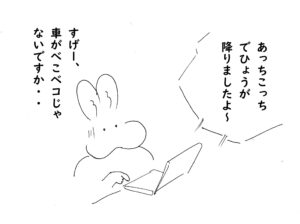 あっちこっち
でひょうが
降りましたよ～
すげー、
車がべこベコじゃ
ないですか・・